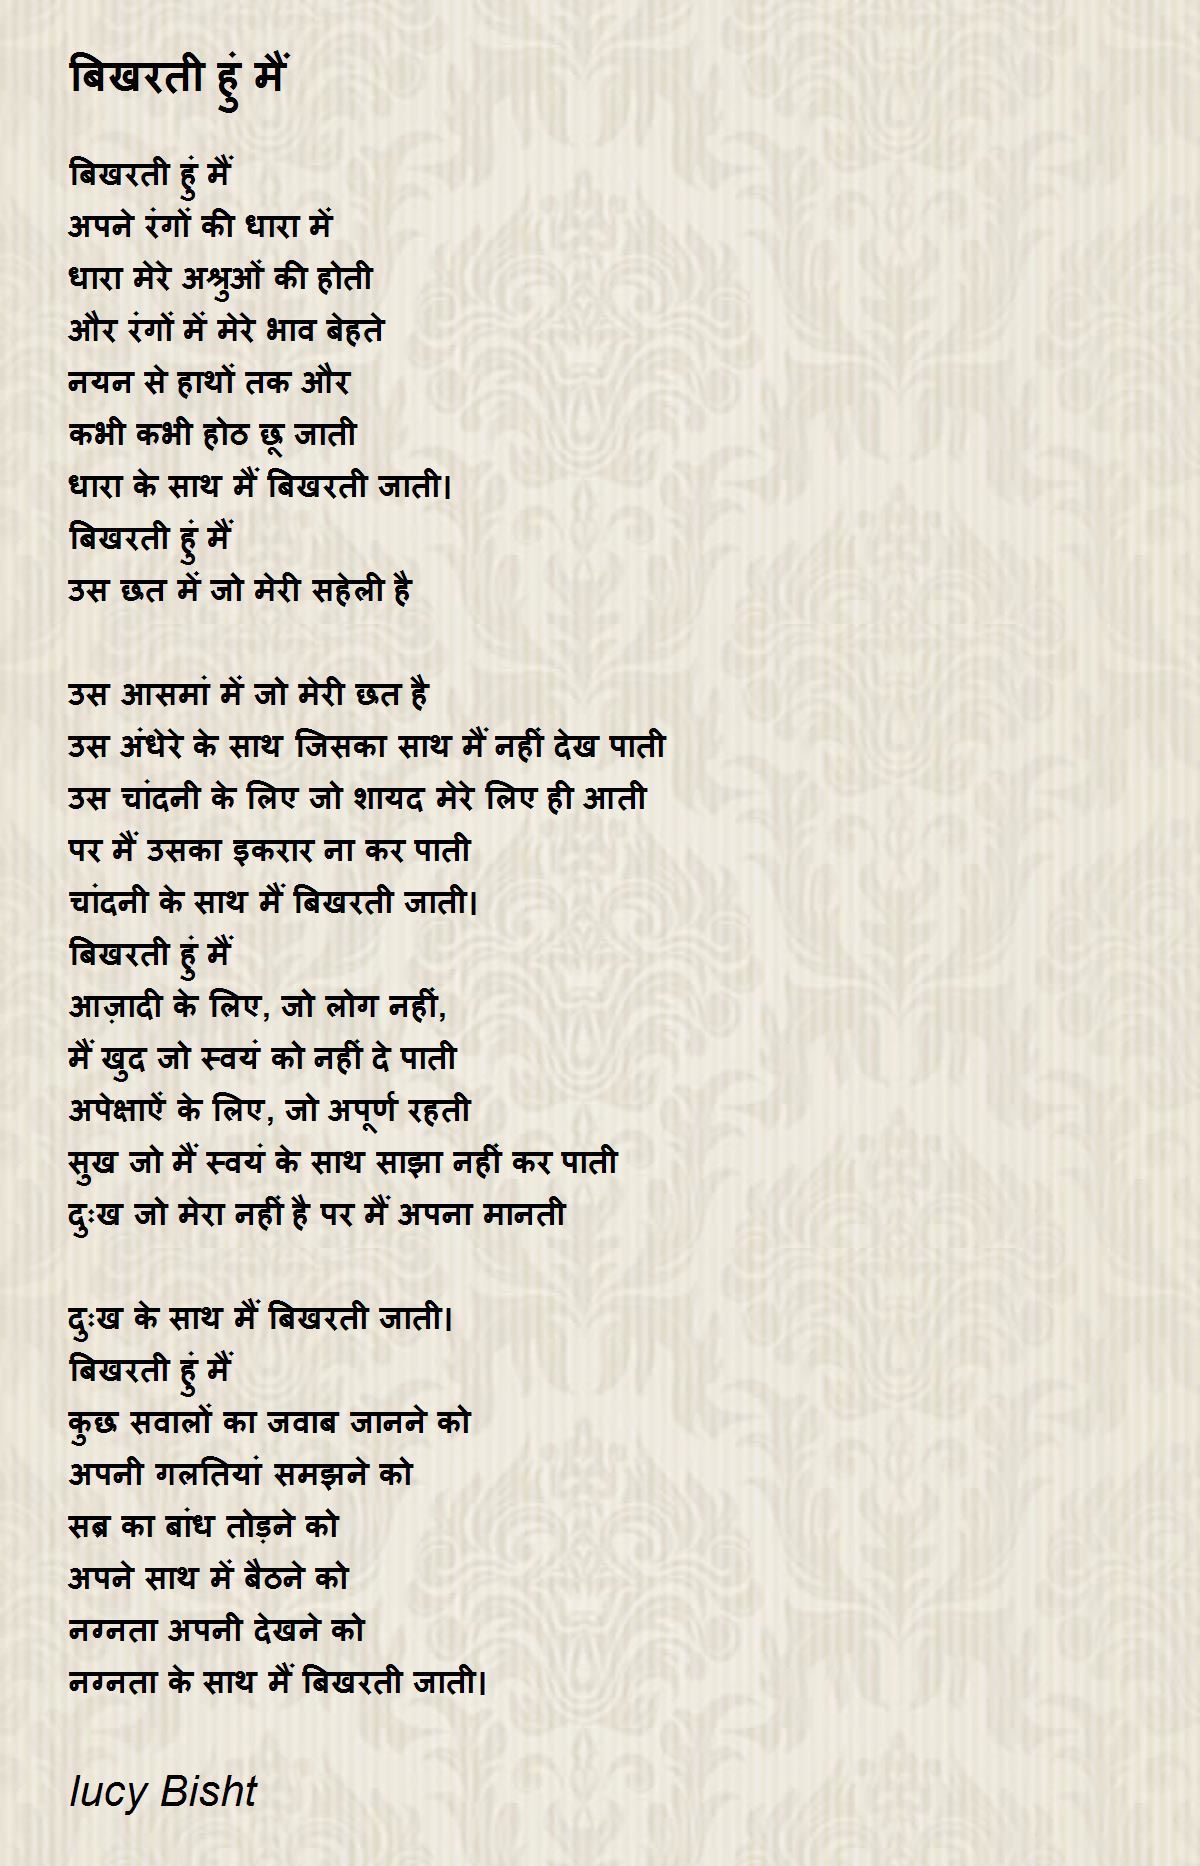 बिखरती हुं मैं
बिखरती हुं मैं
अपने रंगों की धारा में
धारा मेरे अश्रुओं की होती
और रंगों में मेरे भाव बेहते
नयन से हाथों तक और
कभी कभी होठ छू जाती
धारा के साथ मैं बिखरती जाती।
बिखरती हुं मैं
उस छत में जो मेरी सहेली है
उस आसमां में जो मेरी छत है
उस अंधेरे के साथ जिसका साथ मैं नहीं देख पाती
उस चांदनी के लिए जो शायद मेरे लिए ही आती
पर मैं उसका इकरार ना कर पाती
चांदनी के साथ मैं बिखरती जाती।
बिखरती हुं मैं
आज़ादी के लिए, जो लोग नहीं,
मैं खुद जो स्वयं को नहीं दे पाती
अपेक्षाऐं के लिए, जो अपूर्ण रहती
सुख जो मैं स्वयं के साथ साझा नहीं कर पाती
दुःख जो मेरा नहीं है पर मैं अपना मानती
दुःख के साथ मैं बिखरती जाती।
बिखरती हुं मैं
कुछ सवालों का जवाब जानने को
अपनी गलतियां समझने को
सब्र का बांध तोड़ने को
अपने साथ में बैठने को
नग्नता अपनी देखने को
नग्नता के साथ मैं बिखरती जाती।
lucy Bisht